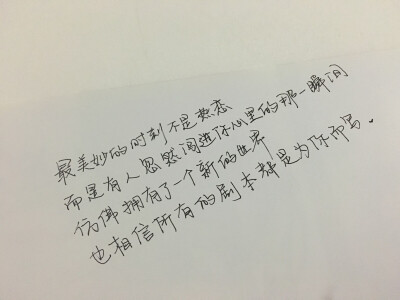 最美妙的时刻不是热恋
而是有人忽然闯进你心里的那一瞬间
仿佛拥有了一个新的世界
也相信所有的剧本都是为你而写.